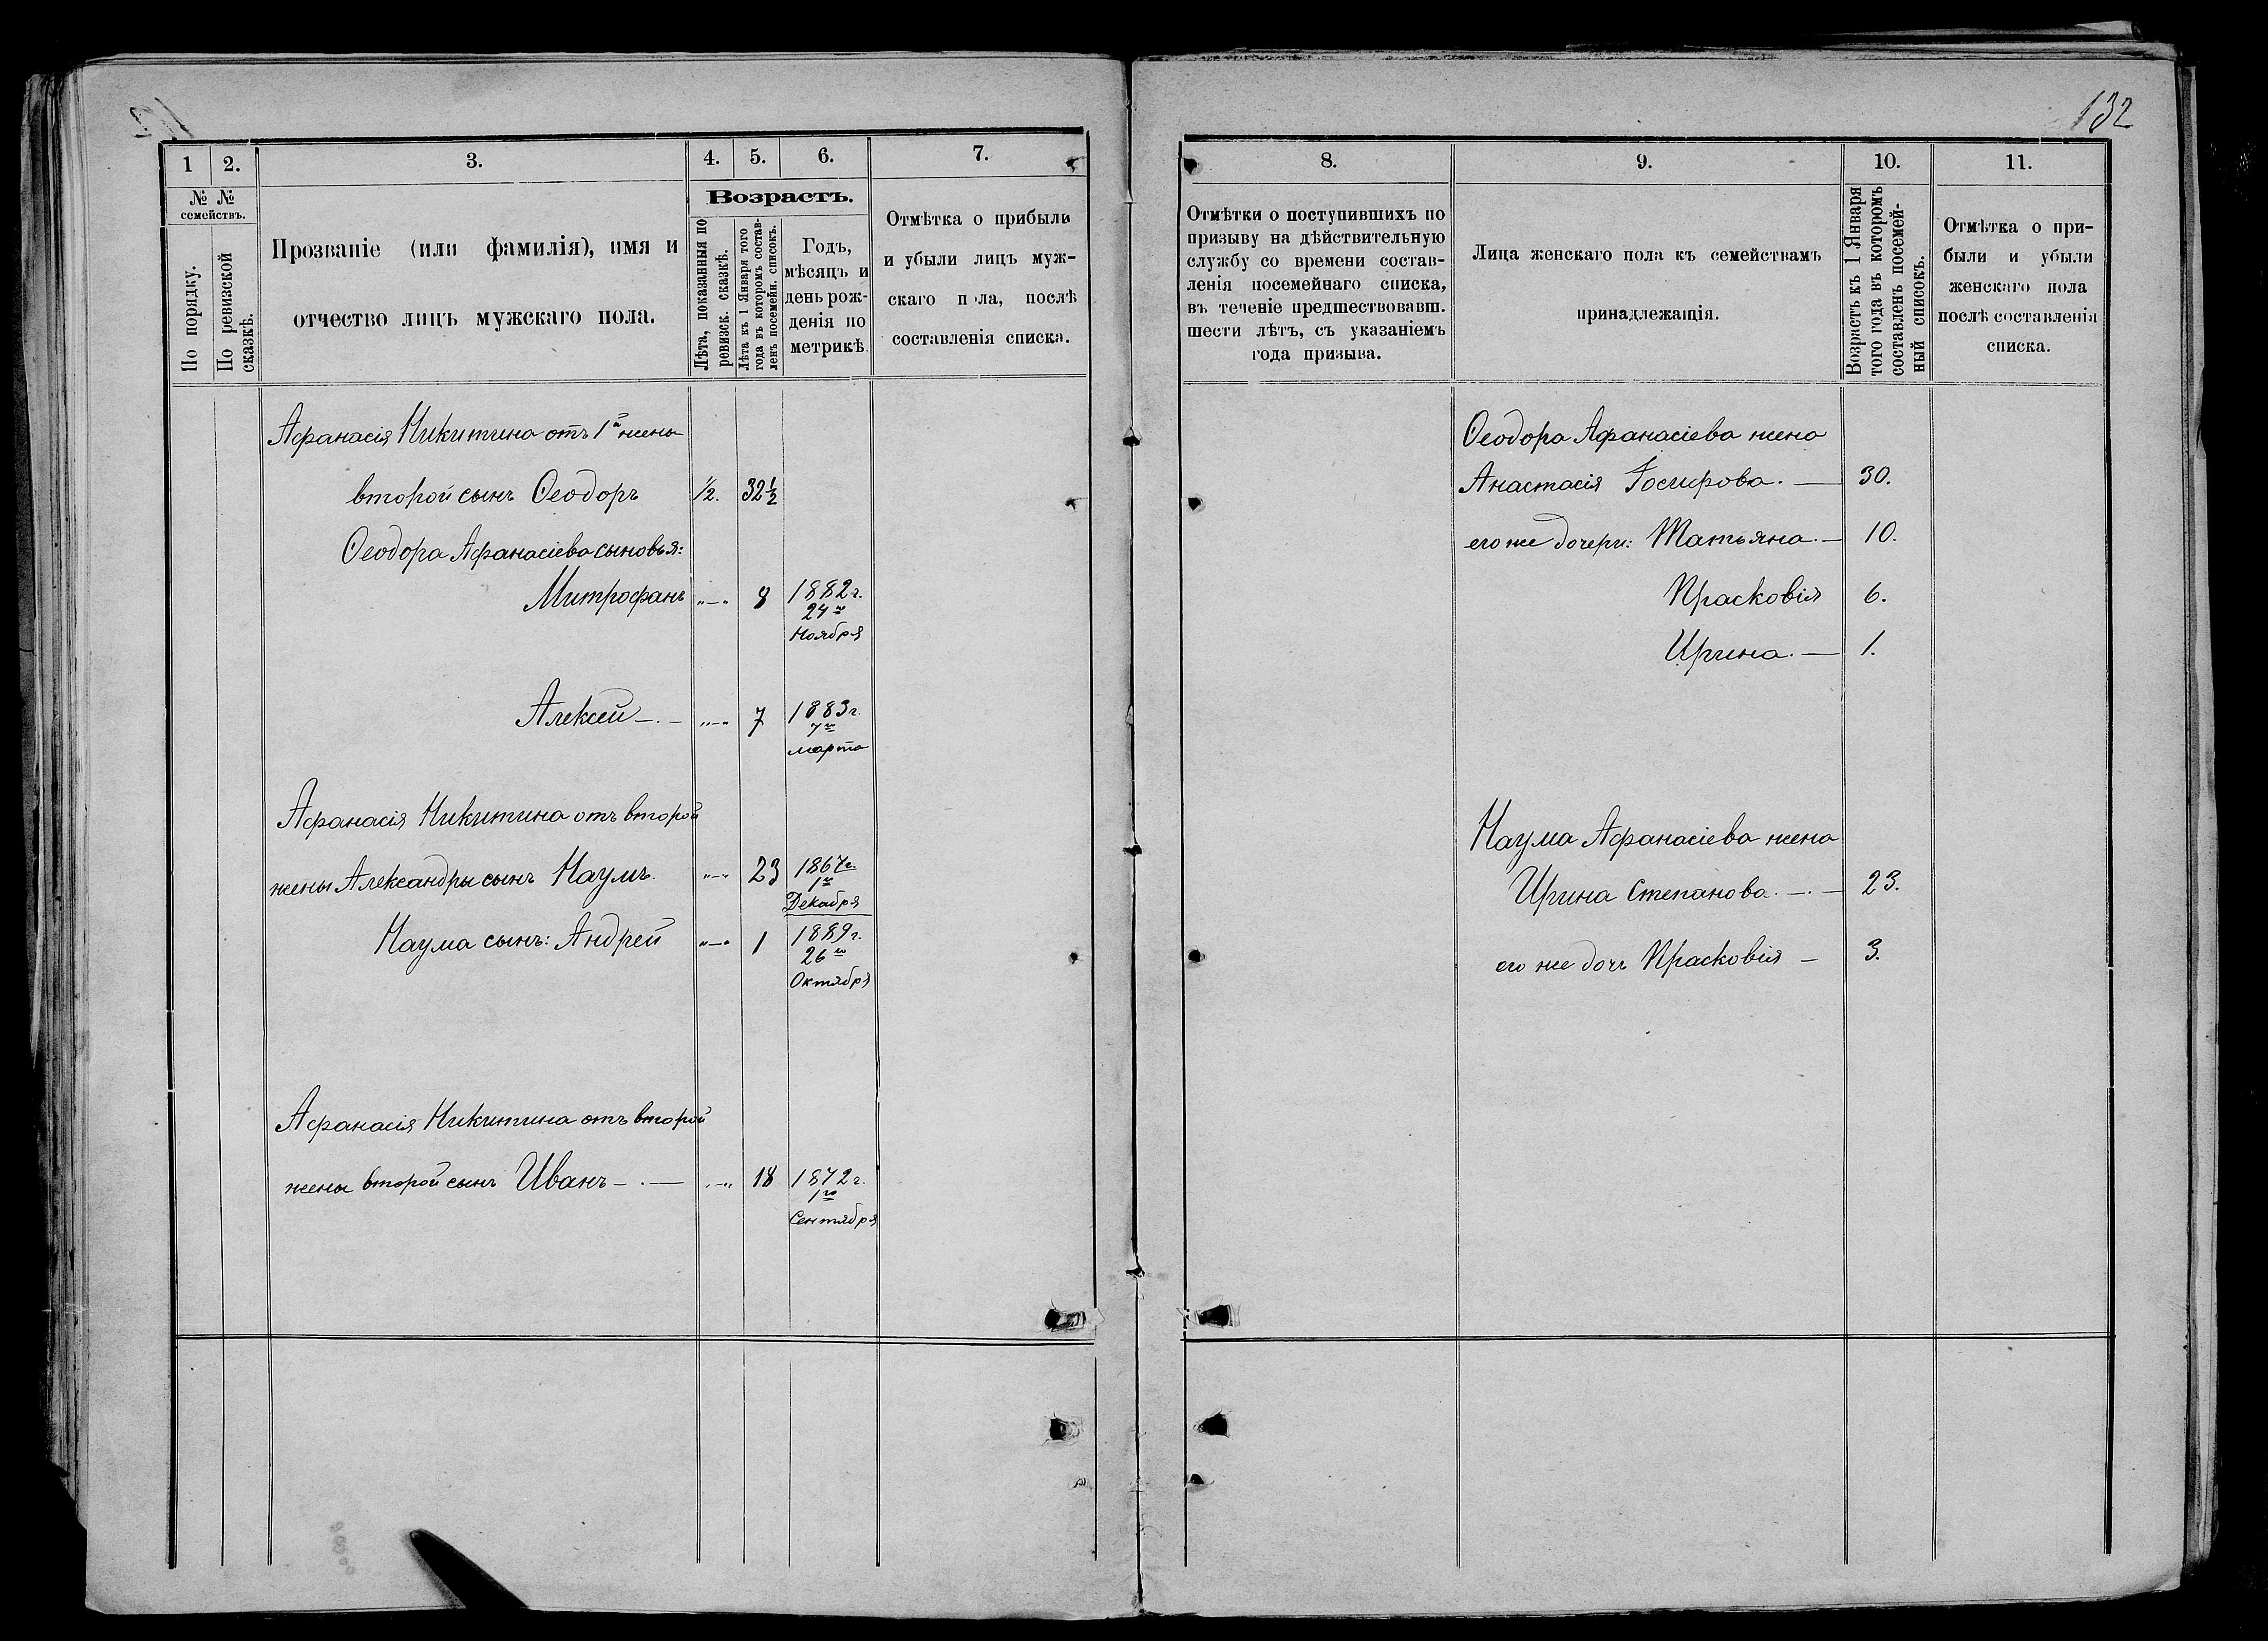 132
1
2.
3.
4.
5.
6.
7.
№ №
семействъ.
По порядку.
По ревизской
сказкѣ.
Прозваніе (или фамилія), имя и
отчество лицъ мужскаго пола.
Возрастъ.
Лѣта, показанныя по
ревизск. сказкѣ.
Лѣта къ 1 Января того
года въ которомъ состав-
ленъ посемейн. списокъ.
Годъ,
мѣсяцъ и
день рож-
денія по
метрикѣ.
Отмѣтка о прибыли
и убыли лицъ муж-
скаго пола, послѣ
составленія списка.
Афанасія Никитина отъ 1й жены
второй сынъ Ѳеодоръ 1/2. 32 1/2
Ѳеодора Афанасіева сыновья:
Митрофанъ „—„ 8 1882 г.
24го
Ноября
Алексей —.— „—„ 7 1883 г.
7го
марта
Афанасія Никитина отъ второй
жены Александры сынъ Наумъ. „—„ 23 1867 г.
1го
Декабря
Наума сынъ: Андрей „—„ 1 1889 г.
26го
Октября
Афанасія Никитина отъ второй
жены второй сынъ Иванъ —.— „—„ 18 1872 г.
1го
Сентября
8.
9.
10.
11.
Отмѣтки о поступившихъ по
призыву на дѣйствительную
службу со времени состав-
ленія посемейнаго списка,
въ теченіе предшествовавш.
шести лѣтъ, съ указаніемъ
года призыва.
Лица женскаго пола къ семействамъ
принадлежащія.
Возрастъ къ 1 Января
того года въ которомъ
составленъ посемей-
ный списокъ.
Отмѣтка о при-
были и убыли
женскаго пола
послѣ составленія
списка.
Ѳеодора Афанасіева жена
Анастасія . — 30.
его же дочери: Татьяна. — 10.
Прасковія 6.
Ирина. — 1.
Наума Афанасіева жена
Ирина Степанова. —.— 23.
его же дочь Прасковія — 3.